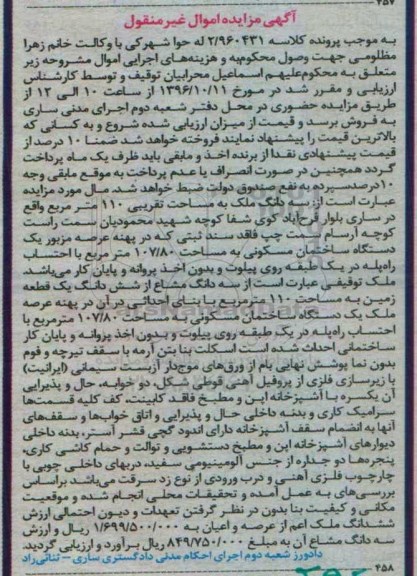 ۴۵۷
آگهی مزایده اموال غیر منقول
به موجب پرونده کلاسه ۲/۹۶۰۴۳۱ له حوا شهرکی با وکالت خانم زهرا
مظلومی جهت وصول محکوم‌به و هزینه‌های اجرایی اموال مشروحه زیر
متعلق به محکوم‌علیهم اسماعیل محرابیان توقیف و توسط کارشناس
ارزیابی و مقرر شد در مورخ ۱۳۹۶/۱۰/۱۱ از ساعت ۱۰ الی ۱۲ از
طریق مزایده حضوری در محل دفتر شعبه دوم اجرای مدنی ساری
به فروش برسد و قیمت از میزان ارزیابی شده شروع و به کسانی که
بالاترین قیمت را پیشنهاد نمایند فروخته خواهد شد ضمنا ۱۰ درصد از
قیمت پیشنهادی نقدا از برنده اخذ و مابقی باید ظرف یک ماه پرداخت
گردد همچنین در صورت انصراف یا عدم پرداخت به موقع مابقی وجه
۱۰درصدسپرده به نفع صندوق دولت ضبط خواهد شد. مال مورد مزایده
عبارت است از: سه دانگ ملک به مساحت تقریبی ۱۱۰ متر مربع واقع
در ساری بلوار فرح‌آباد کوی شفا کوچه شهید محمودیان سمت راست
کوچه آرسام سمت چپ فاقد سند ثبتی که در پهنه عرصه مزبور یک
دستگاه ساختمان مسکونی به مساحت ۱۰۷/۸۰ متر مربع با احتساب
راه‌پله در یک طبقه روی پیلوت و بدون اخذ پروانه و پایان کار می‌باشد.
ملک توقیفی عبارت است از سه دانگ مشاع از شش دانگ یک قطعه
زمین به مساحت ۱۱۰ مترمربع با بنای احداثی در آن در پهنه عرصه
ملک یک دستگاه ساختمان مسکونی به مساحت ۱۰۷/۸۰ مترمربع با
احتساب راه‌پله در یک طبقه روی پیلوت و بدون اخذ پروانه و پایان کار
ساختمانی احداث شده است اسکلت بنا بتن آرمه با سقف تیرچه و فوم
بدون نما پوشش نهایی بام از ورق‌های موج‌دار آزبست سیمانی (ایرانیت)
با زیرسازی فلزی از پروفیل آهنی قوطی شکل، دو خوابه، حال و پذیرایی
آن یکسره با آشپزخانه اپن و مطبخ فاقد کابینت، کف کلیه قسمت‌ها
سرامیک کاری و بدنه داخلی حال و پذیرایی و اتاق خواب‌ها و سقف‌های
آنها به انضمام سقف آشپزخانه دارای اندود گچی قشر آستر، بدنه داخلی
دیوارهای آشپزخانه اپن و مطبخ دستشویی و توالت و حمام کاشی کاری،
پنجره‌ها دو جداره از جنس آلومینیومی سفید، دربهای داخلی چوبی با
چارچوب فلزی آهنی و درب ورودی از نوع زد سرقت می‌باشد براساس
بررسی‌های به عمل آمده و تحقیقات محلی انجام شده و موقعیت
مکانی و کیفیت بنا بدون در نظر گرفتن تعهدات و دیون احتمالی ارزش
ششدانگ ملک اعم از عرصه و اعیان به ۱/۶۹۹/۵۰۰/۰۰۰ ریال و ارزش
سه دانگ مشاع آن به مبلغ ۸۴۹/۷۵۰/۰۰۰ ریال برآورد و ارزیابی گردید.
دادورز شعبه دوم اجرای احکام مدنی دادگستری ساری – ثنائی‌راد
۴۵۸